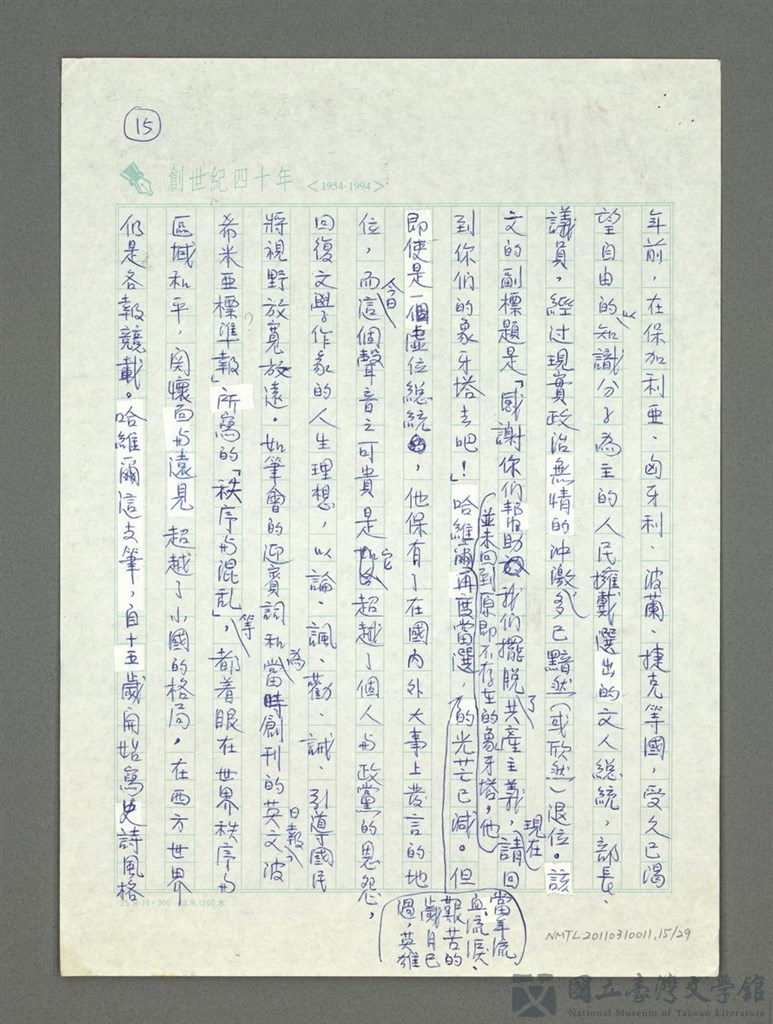 15
創世紀四十年 <1954-1994>
年前，在保加利亞、匈牙利、波蘭、捷克等國，受久已渴
望自由的知識分子為主的人民擁戴選出的文人總統，部長、
議員，經过現實政治無情的冲激多已黯然（或欣然）退位。該
文的副標題是「感謝你们帮助我们擺脱了共產主義，現在請回
到你们的象牙塔去吧！」哈維爾再度當選，並未回到原即不存在的象牙塔，他的光芒已減。但
當年流血流淚、艱苦的歲月已過，英雄
即使是一個虛位總統，他保有了在國內外大事上發言的地
位，而今日這個聲音之可貴是它超越了個人与政黨的恩怨，
回復文學作家的人生理想，以論、諷、勸、誡、引導國民
將視野放寬放遠。如筆會的迎賓詞和為當時創刊的英文波
希米亞標準報」日報所寫的「秩序与混乱」等，都着眼在世界秩序与
區域和平，関懷面与遠見超越了小國的格局，在西方世界
仍是各報競載。哈維爾這支筆，自十五歲開始寫史詩風格
NMTL20110310011,15/29
國立臺灣文學館
National Museum of Taiwan Literature